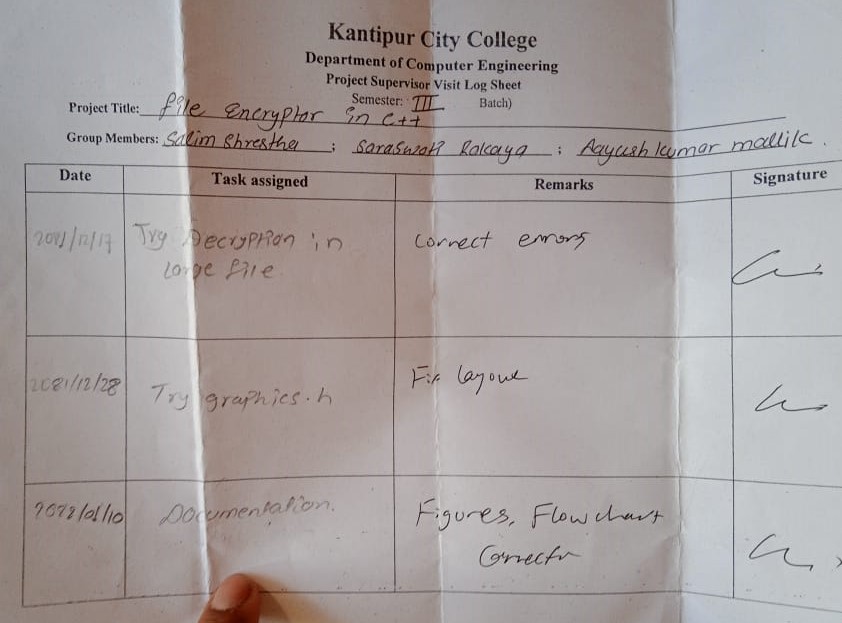 Kantipur City College
Department of Computer Engineering
Project Supervisor Visit Log Sheet
Semester: III Batch)
Project Title: File Encryptor in C++
Group Members: Salim Shrestha ; Saraswati Rokaya ; Aayush kumar mallik.
Date Task assigned Remarks Signature
Try Decryption in Correct errors
Large file
2081/12/28 Try graphics.h Fix layout
Documentation. Figures, Flowchart